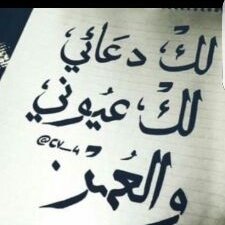 لكْ دعَائي
لكْ عيُوني
@cv_4
والعُمْر